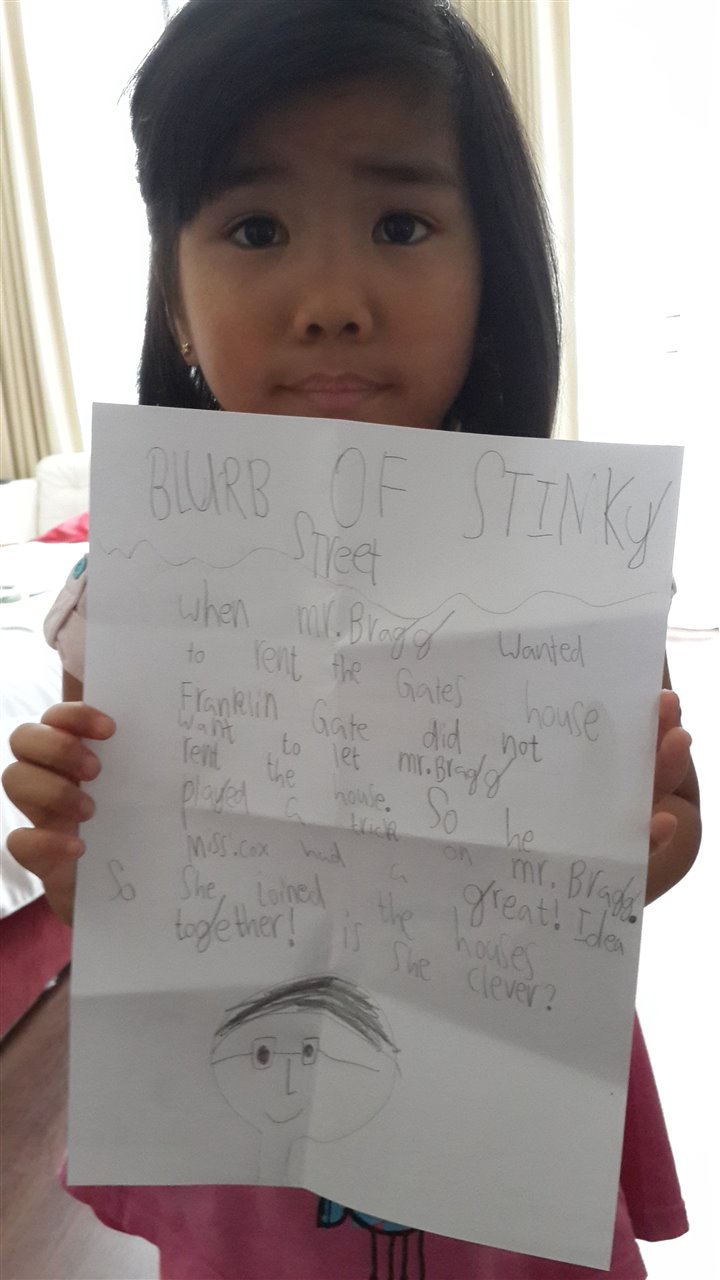 BLURB OF STINKy
Street
when mr.Bragg wanted
to rent the Gates house
Franklin Gate did not
want to let mr.Bragg
rent the house. So he
played a trick on mr. Bragg.
Miss.cox had a great! Idea
So She joined the houses
together! is She clever?